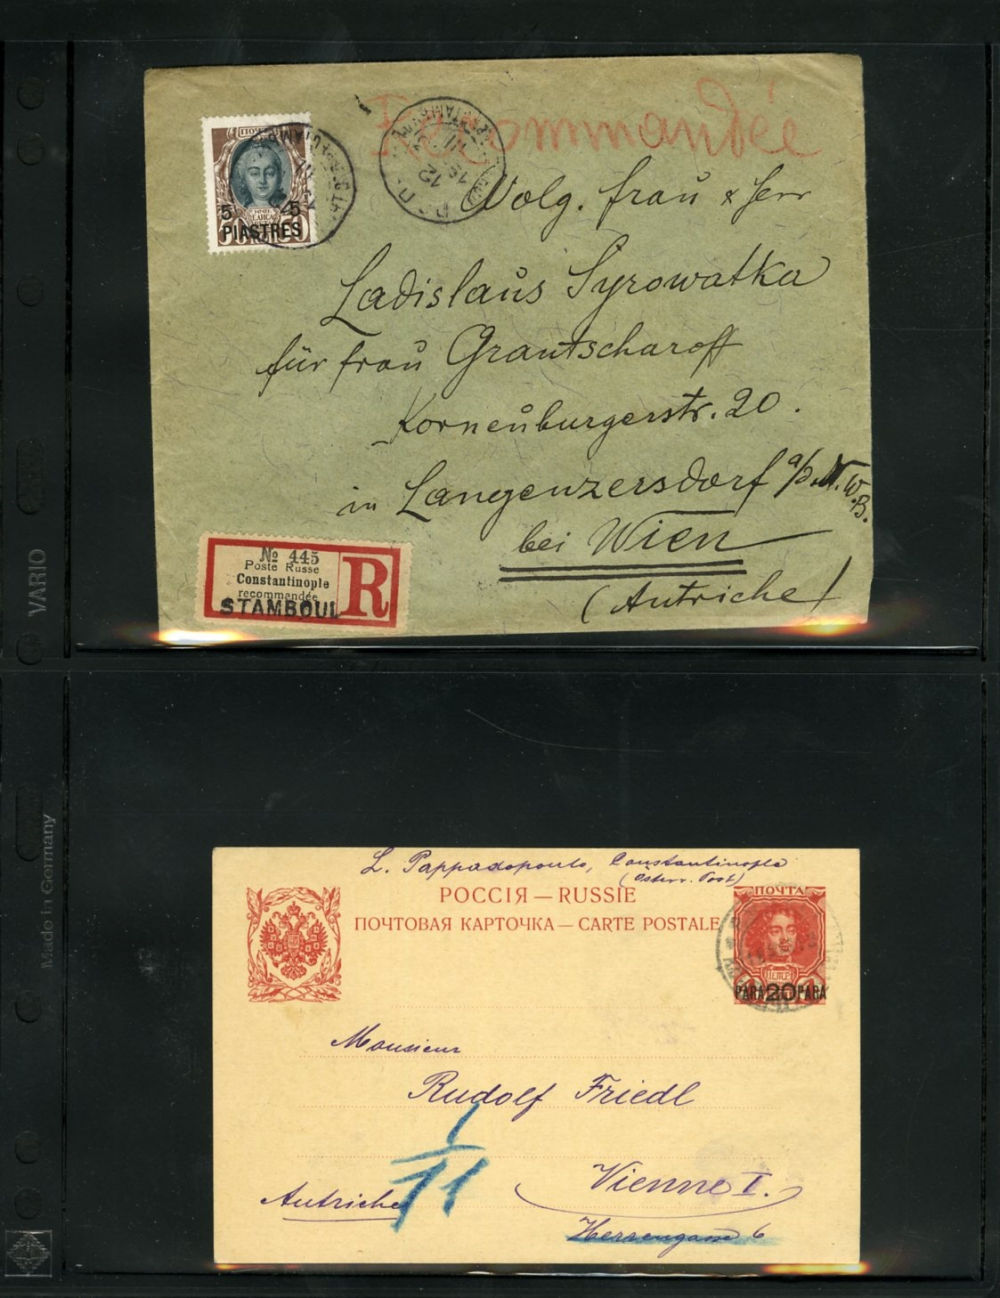 Recommandée
ПОЧТ
5 5
PIASTRES
12
Wolg. Frau & Herr
Ladislaus Syrowatka
für Frau Grantscharoff
Korneuburgerstr. 20.
in Langenzersdorf a/d. N. W. B.
bei Wien
(Autriche)
№ 445
Poste Russe
Constantinople
recommandée
STAMBOUL
R
VARIO
Made in Germany
L. Pappadopoulo, Constantinople
(Österr. Post)
РОССІЯ — RUSSIE
ПОЧТОВАЯ КАРТОЧКА — CARTE POSTALE
ПОЧТА
ПЕТРЪ I
PARA 20 PARA
Monsieur
Rudolf Friedl
1/11
Vienne I.
Autriche
Herrengasse 6